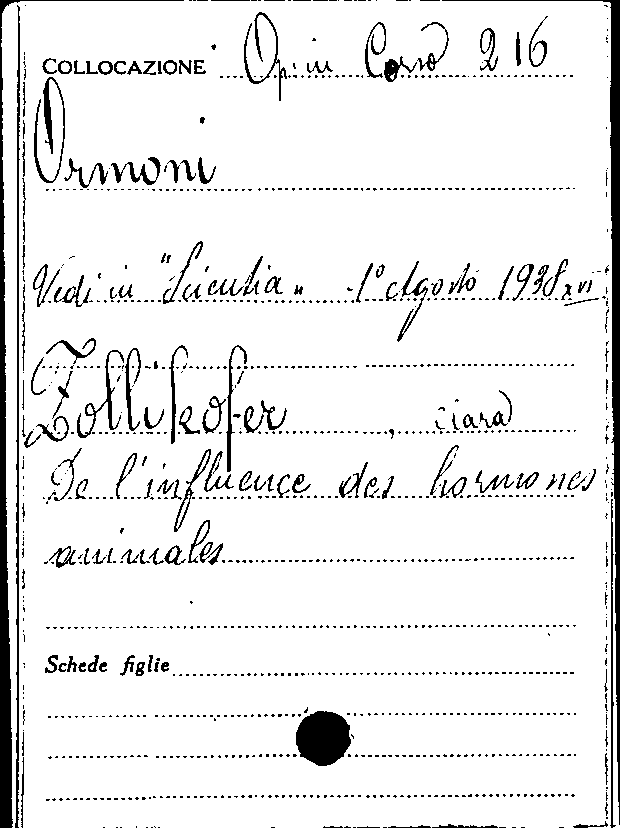 COLLOCAZIONE Op. in Corso 216
Ormoni
Vedi in "Scientia" - 1° Agosto 1938 XVI
Zollikofer, Clara
De l'influence des hormones
animales
Schede figlie